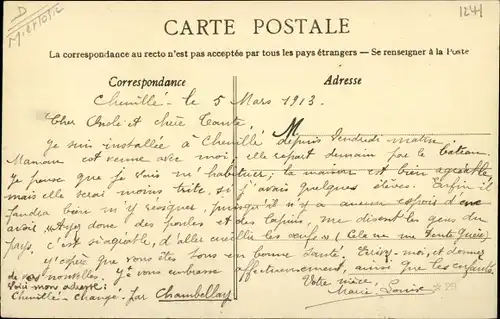 D
1271
CARTE POSTALE
La correspondance au recto n'est pas acceptée par tous les pays étrangers — Se renseigner à la Poste
Correspondance
Adresse
Chenillé - le 5 Mars 1913.
Cher Oncle et chère Tante.
M
Je suis installée à Chenillé depuis Vendredi matin
Maman est venue avec moi; elle repart demain par le bateau.
Je pense que je vais m'habituer; la maison est bien agréable,
mais elle serai moins triste si j'avais quelques élèves. Enfin il
faudra bien m'y résigner, puisqu'il n'y a aucun espoir d'en
avoir. Ayez donc des poules et des lapins, me disent les gens du
pays, c'est si agréable, d'aller cueillir les œufs (Cela ne me tente guère)
J'espère que vous êtes tous en bonne santé. Ecrivez-moi, et donnez
de vos nouvelles. Je vous embrasse affectueusement, ainsi que les enfants
Voici mon adresse:
Votre nièce,
Chenillé-Changé - par Chambellay
Marie Louise